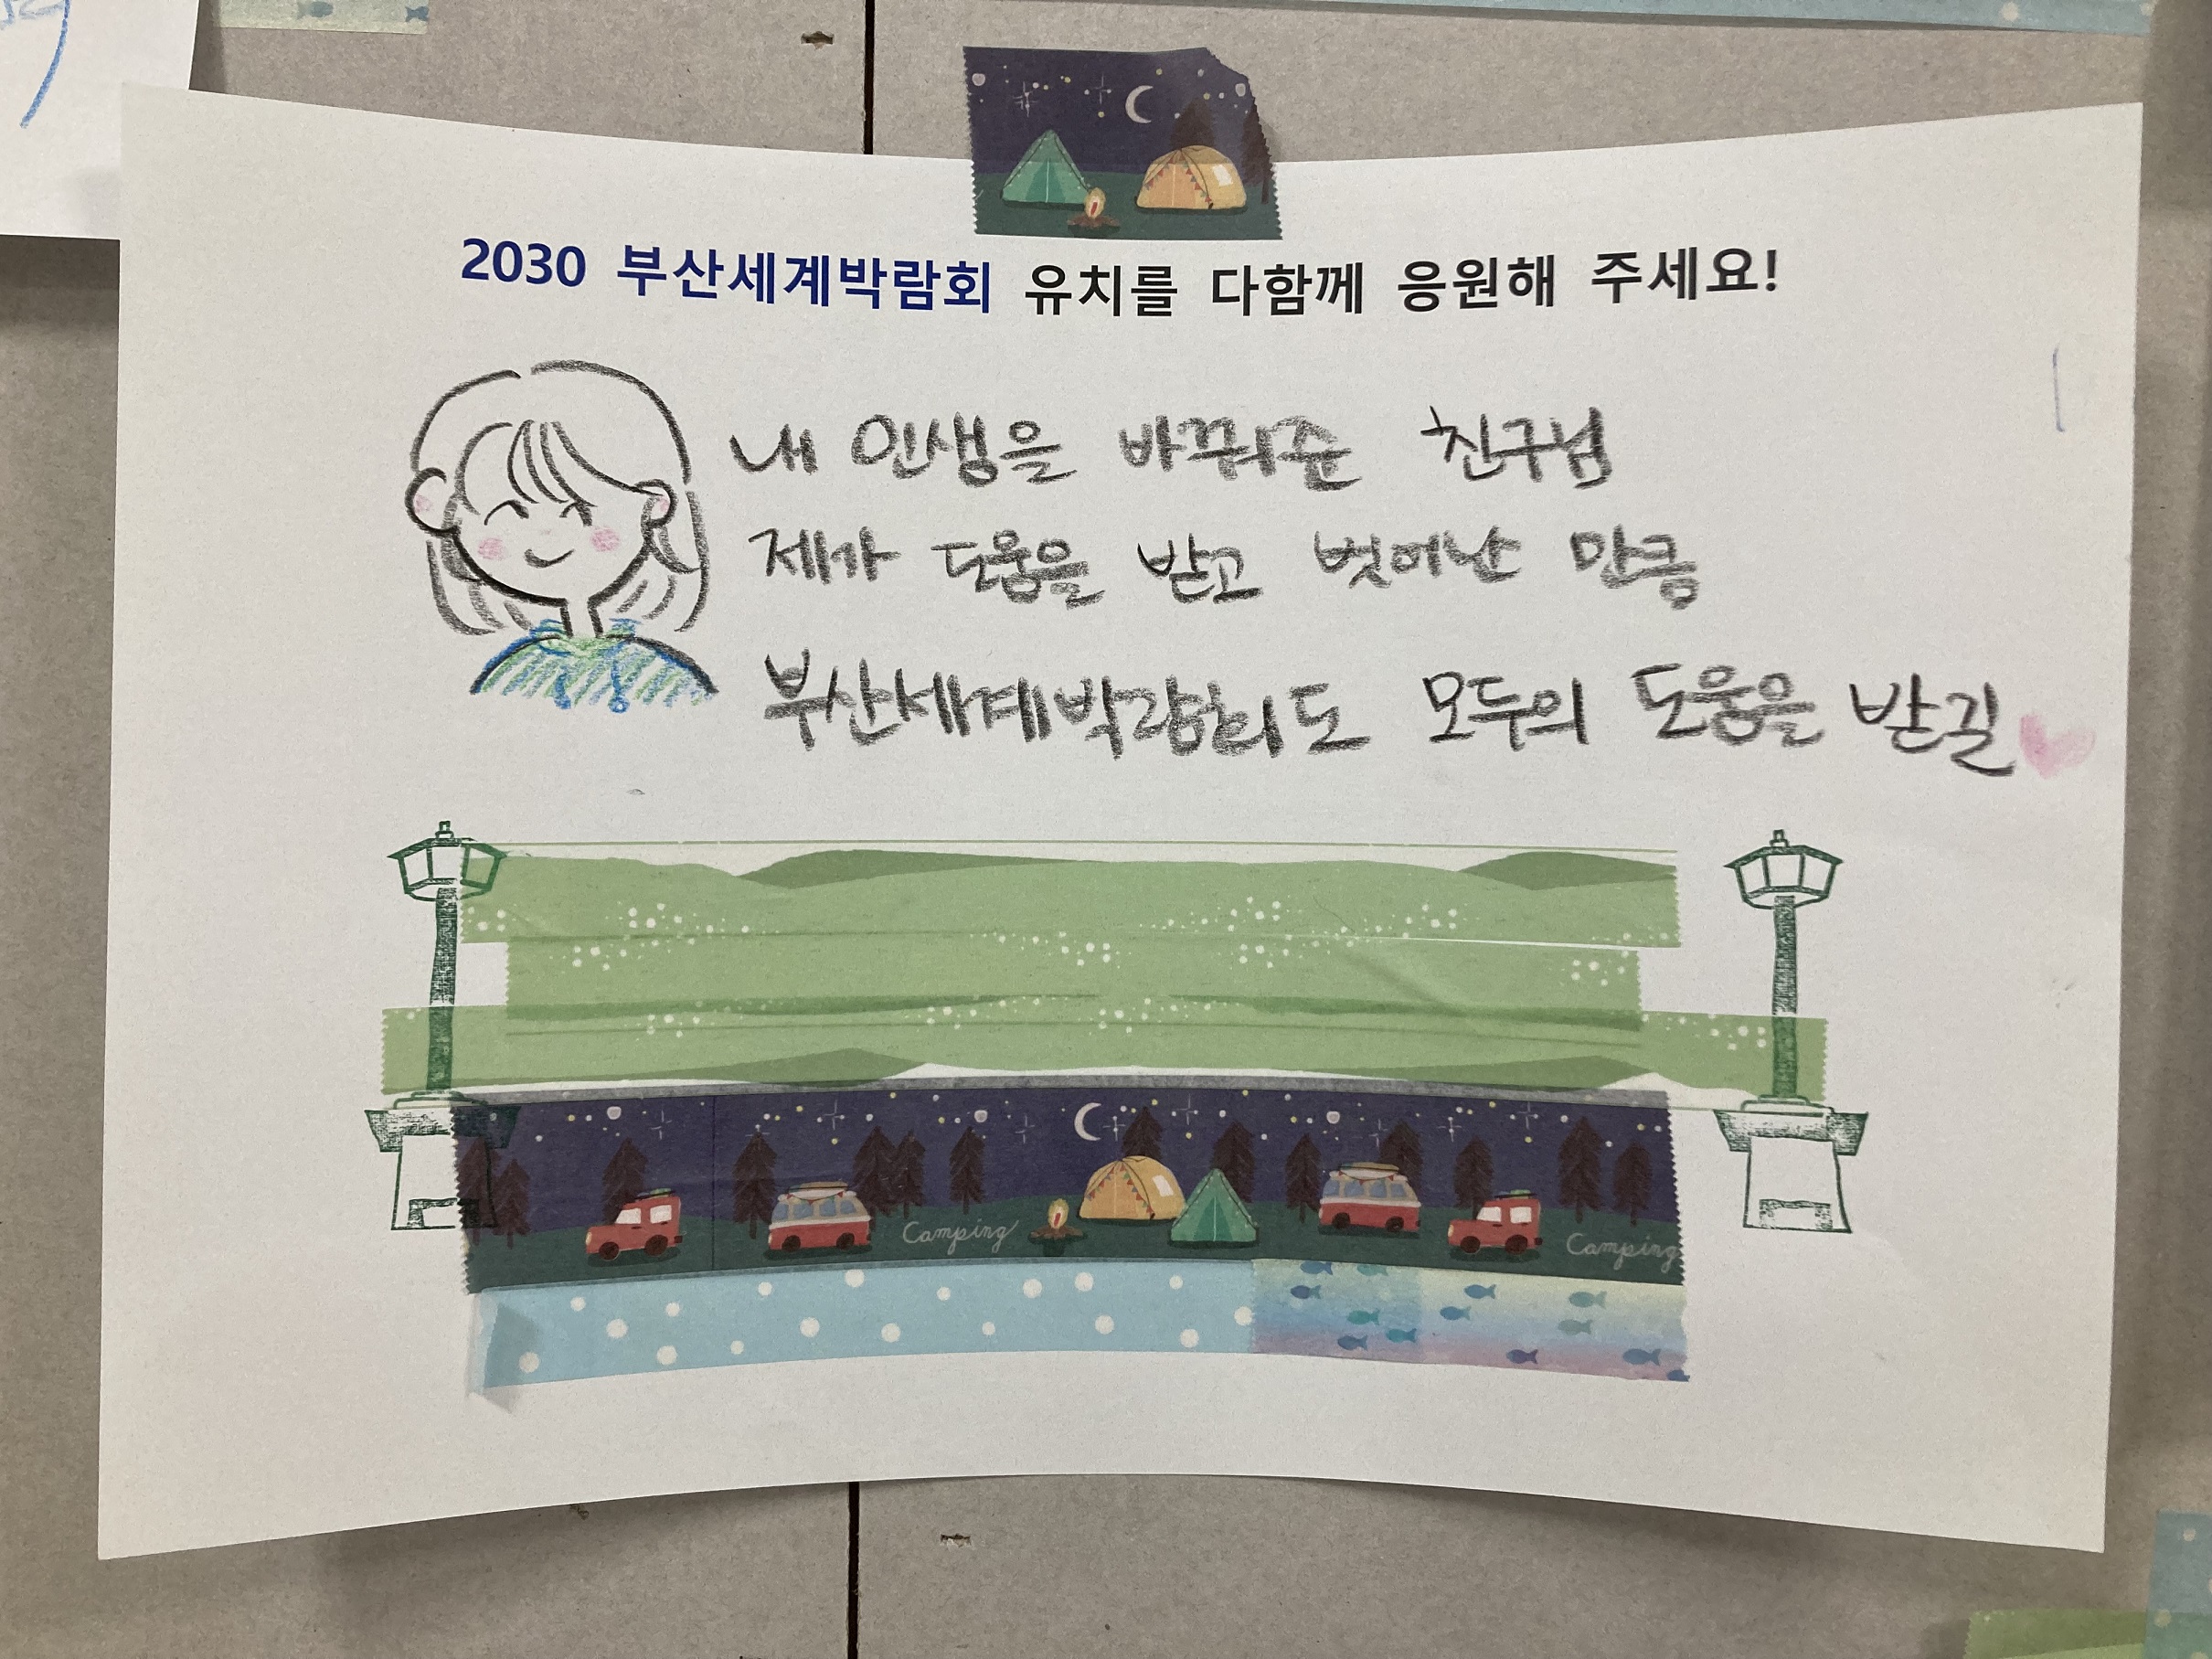 2030 부산세계박람회 유치를 다함께 응원해 주세요!
내 인생을 바꿔준 친구님
제가 도움을 받고 벗어난 만큼
부산세계박람회도 모두의 도움을 받길
Camping
Camping